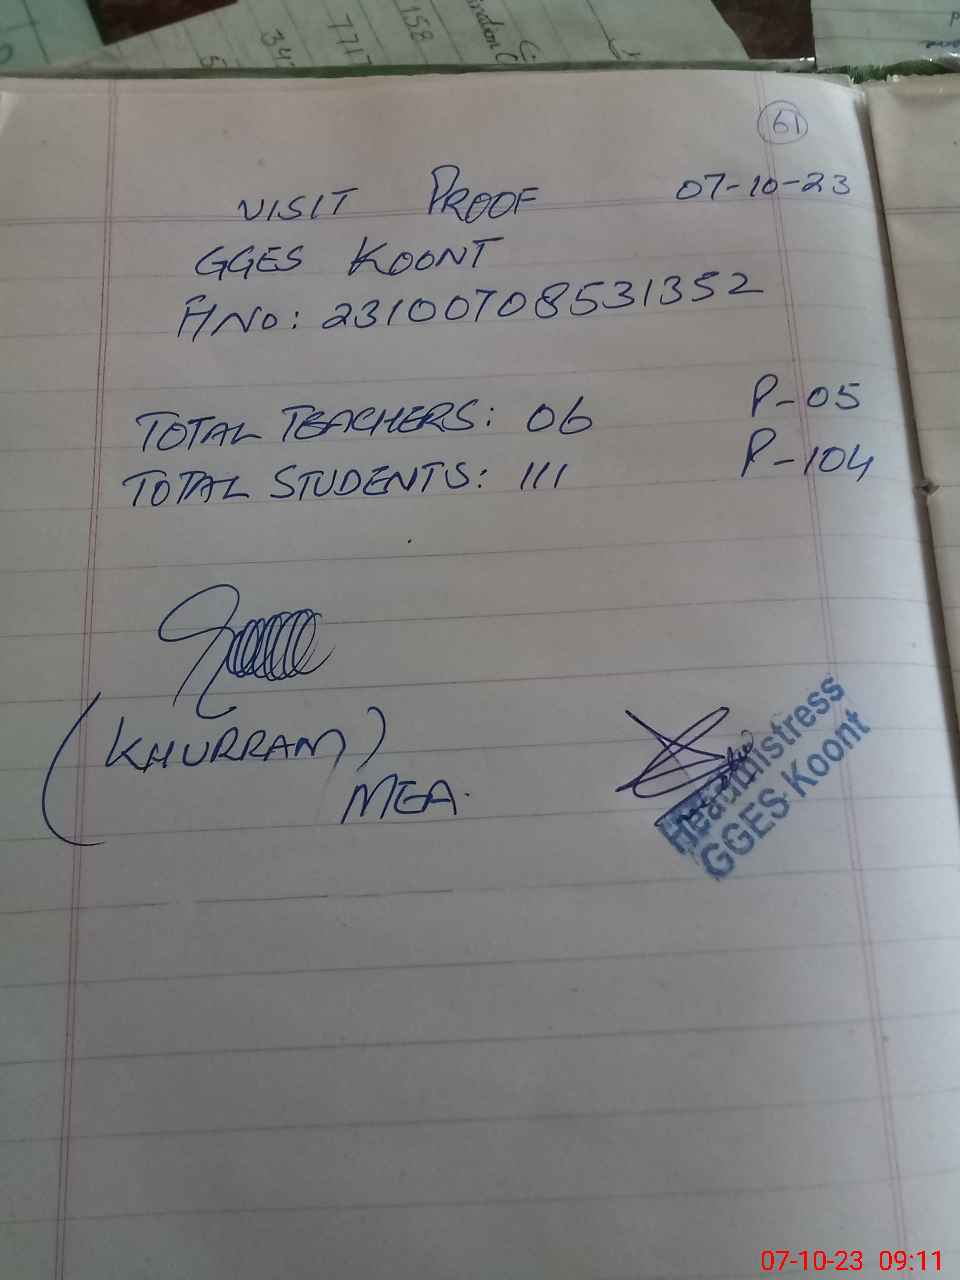 5 347 7717 158
61
VISIT PROOF 07-10-23
GGES KOONT
A No: 23100708531352
TOTAL TEACHERS: 06 P-05
TOTAL STUDENTS: 111 P-104
(KHURRAM)
MEA.
Headmistress
GGES Koont
07-10-23 09:11